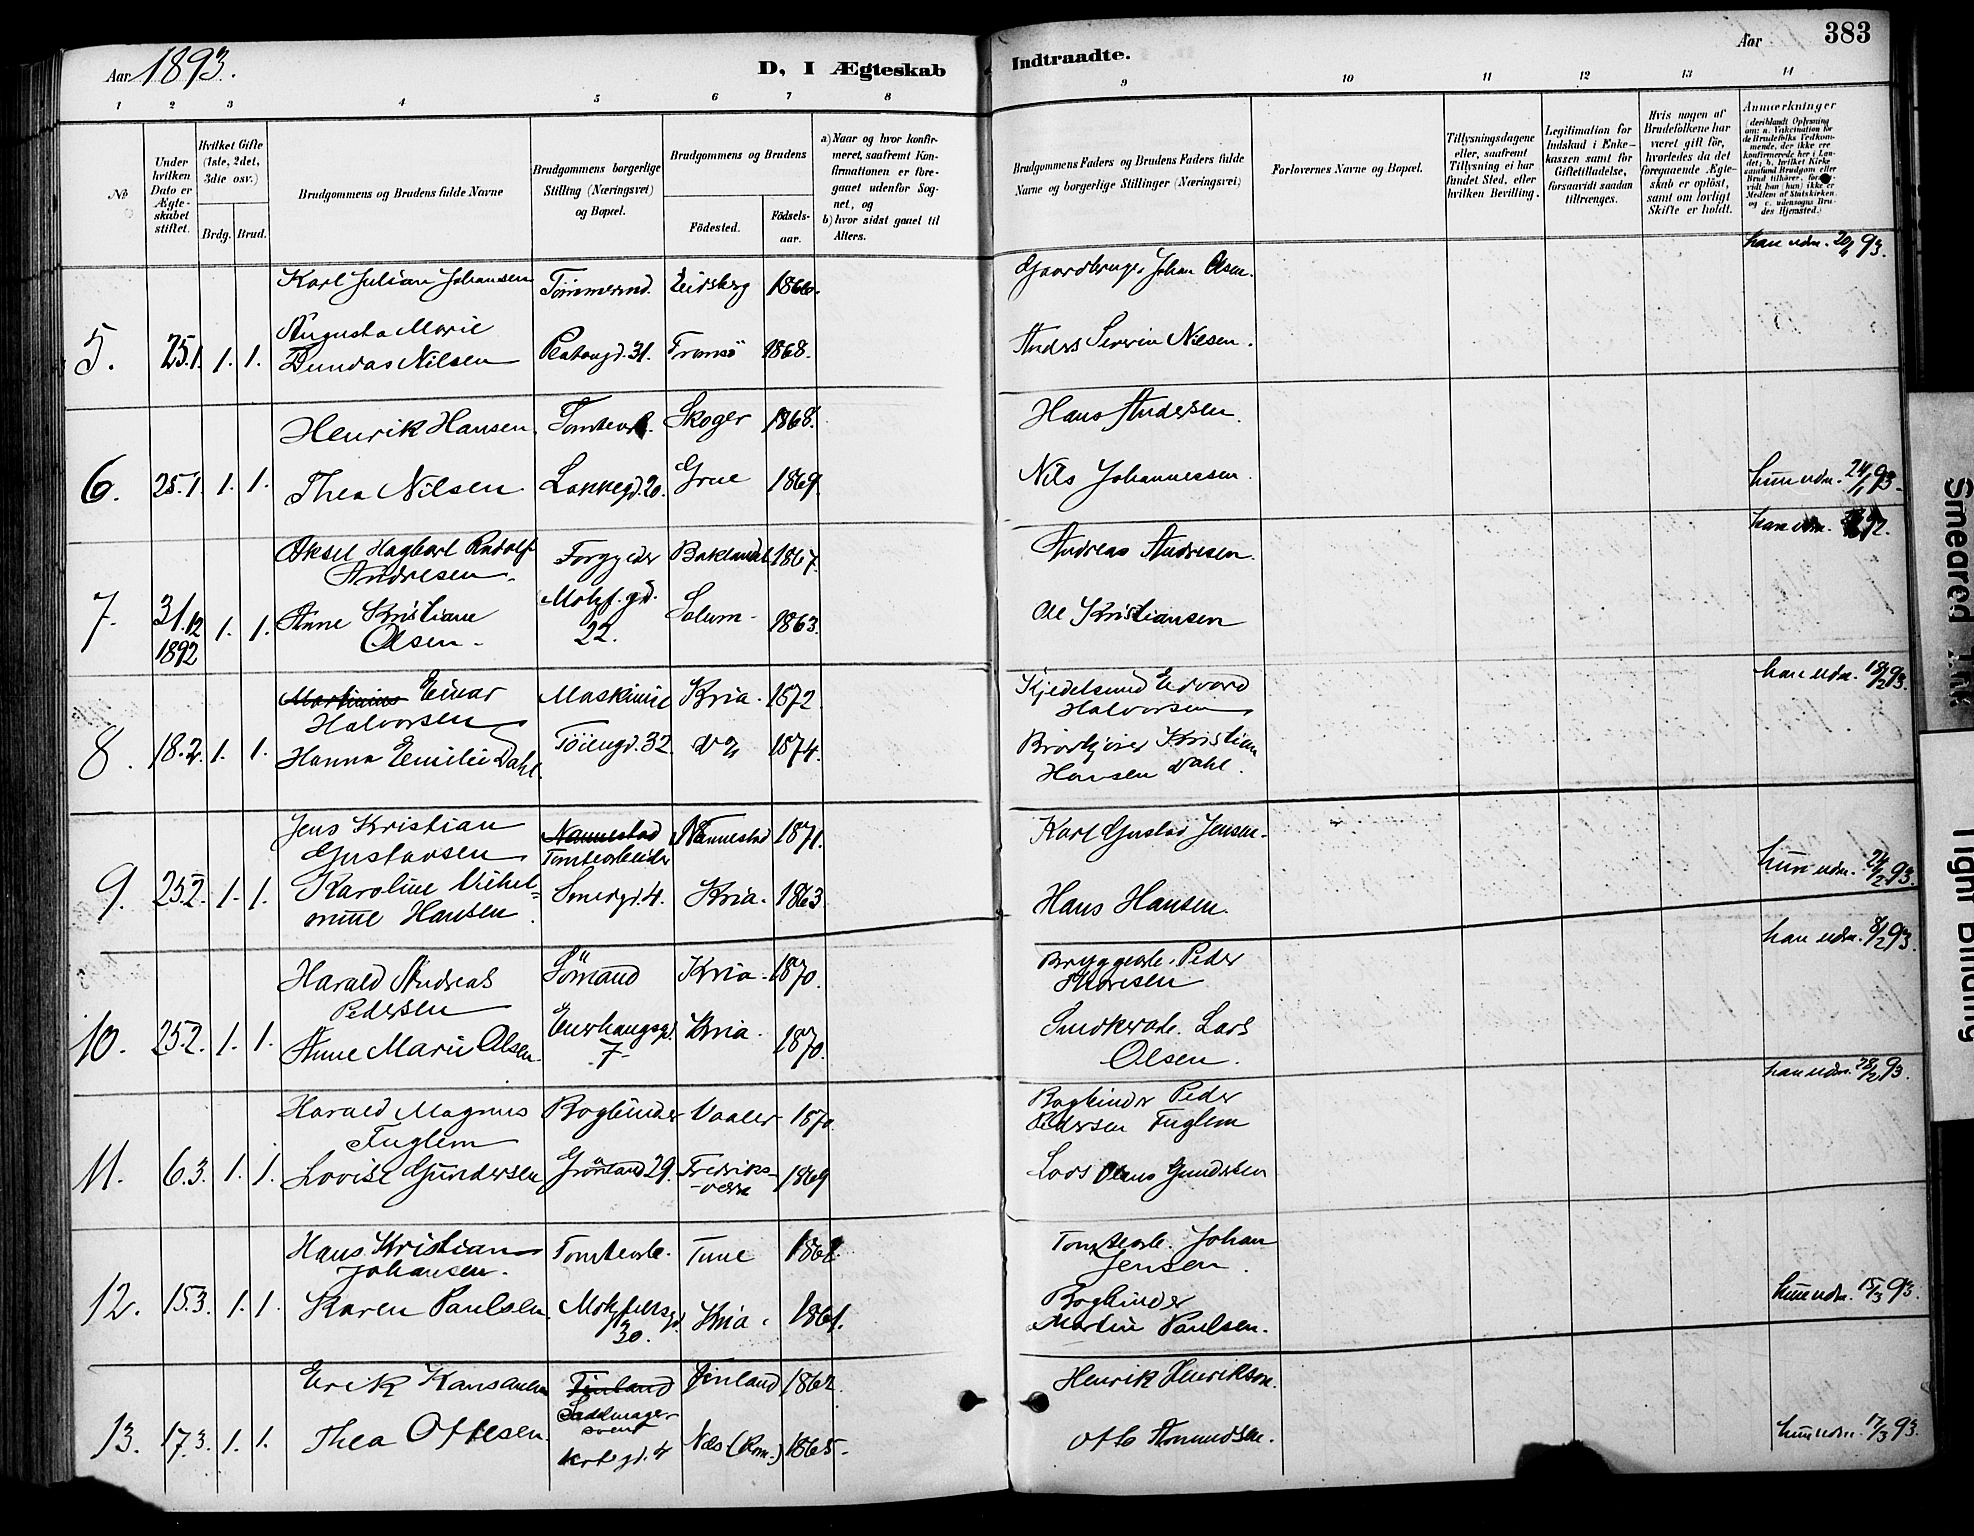 383
Aar 1893.
D, I Ægteskab
Indtraadte.
Aar
1 2 3 4 5 6 7 8 9 10 11 12 13 14
No
Under hvilken Dato er Ægteskabet stiftet.
Hvilket Gifte (1ste, 2det, 3die osv.)
Brdg. Brud.
Brudgommens og Brudens fulde Navne
Brudgommens borgerlige Stilling (Næringsvei) og Bopæl.
Brudgommens og Brudens
Födested.
Födselsaar.
a) Naar og hvor konfirmeret, saafremt Konfirmationen er foregaaet udenfor Sognet, og
b) hvor sidst gaaet til Alters.
Brudgommens Faders og Brudens Faders fulde Navne og borgerlige Stillinger (Næringsvei)
Forlovernes Navne og Bopæl.
Tillysningsdagene eller, saafremt Tillysning ei har fundet Sted, efter hvilken Bevilling.
Legitimation for Indskud i Enkekassen samt for Giftetilladelse, forsaavidt saadan tiltrænges.
Hvis nogen af Brudefolkene har været gift för, hvorledes da det foregaaende Ægteskab er oplöst, samt om lovligt Skifte er holdt.
Anmærkninger
(deriblandt Oplysning om: a. Vakcination for de Brudefolks Vedkommende, der ikke ere konfirmerede her i Landet; b. hvilket Kirkesamfund Brudgom eller Brud tilhörer, forsavidt han (hun) ikke er Medlem af Statskirken, og c. udensogns Brudes Hjemsted.)
Karl Julian Johansen Tömmermd. Eidsberg 1866. Gaardbruger Johan Olsen.
5. 25.1. 1. 1. Augusta Marie
Dundas Nilsen Platougd. 31. Tromsö 1868. Anders Severin Nilsen.
Henrik Hansen. Tomtearb. Skoger 1868. Hans Andersen.
6. 25.1. 1. 1. Thea Nilsen Lakkegd. 20. Grue 1869. Nils Johannessen. hun udm. 24/1 93.
Aksel Hagbart Rudolf
Andresen. Forgylder Baklandet 1867. Andreas Andresen. han udm.
7. 31.12 1892 1. 1. Anne Kristiane
Olsen. Motzf.gd. 22. Solum. 1863. Ole Kristiansen
Martinius Einar
Halvorsen Maskinist Kria. 1872 Kjedelsmed Edvard
Halvorsen han udm. 18/2 93.
8. 18.2. 1. 1. Hanna Emilie Dahl. Töiengd. 32 1874. Kristian
Hansen Dahl.
Jens Kristian
Gustavsen Nannestad
Tomtearbeider Nannestad 1871. Karl Gustav Jensen.
9. 25.2. 1. 1. Karoline Vilhel=
mine Hansen. Smedgd. 4. Kria. 1863 Hans Hansen. hun udm. 24/2 93.
Harald Andreas
Pedersen Sömand Kria. 1870. Bryggearb. Peder
Thoresen han udm. 8/2 93.
10. 25.2. 1. 1. Anne Marie Olsen. Enerhaugsgd.
7. Kria. 1870. Lars
Olsen.
Harald Magnus
Fuglem Bogbinder Vaaler 1870. Bogbinder Peder
Pedersen Fuglem han udm. 28/2 93.
11. 6.3. 1. 1. Lovise Gundersen Grönland 29. Fredriks-
værn 1869 Lars Olaus Gundersen
Hans Kristian
Johansen. Tomtearb. Tune Tomtearb. Johan
Jensen.
12. 15.3. 1. 1. Karen Paulsen. Motzfeldtsgd.
30. Kria. 1861. Bogbinder
Martin Paulsen. hun udm. 15/3 93.
Erik Finland
Sadelmager
svend Finland 1862. Henrik Henrikson.
13. 17.3. 1. 1. Thea Ottesen. Nes (Rom.) 1865. Otto Amundsen. hun udm. 17/3 93.
Smeared Ink
Tight Binding